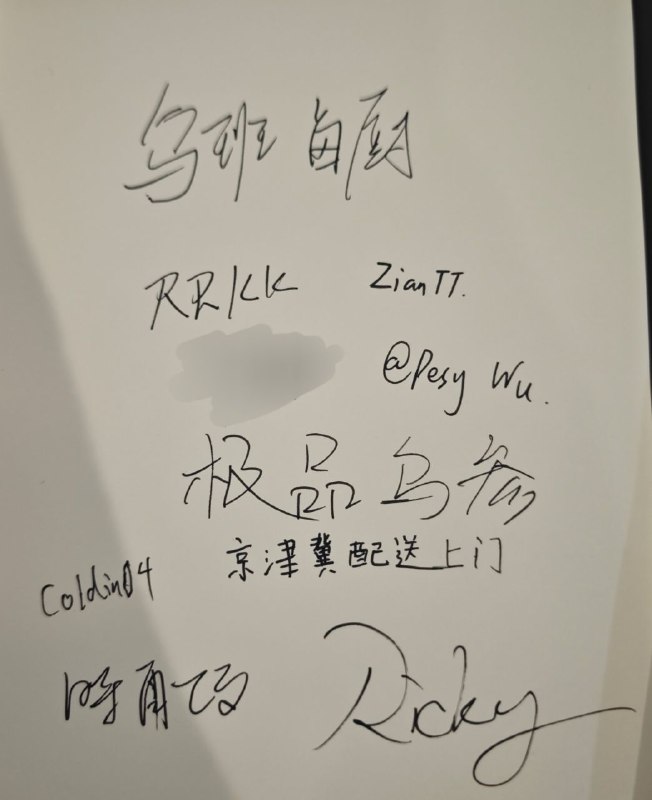 乌班 卤厨
RRKK ZianTT.
@Pesy Wu.
极品乌参
京津冀配送上门
Coldin04
Ricky